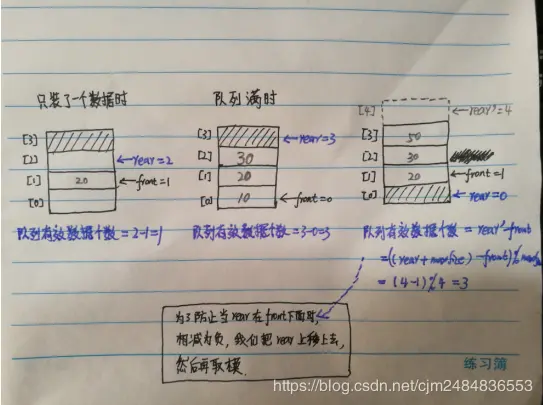 只装了一个数据时
[3]
[2]
rear=2
[1]
20
front=1
[0]
队列有效数据个数=2-1=1
队列满时
[3]
rear=3
[2]
30
[1]
20
[0]
10
front=0
队列有效数据个数=3-0=3
[4]
rear'=4
[3]
50
[2]
30
[1]
20
front=1
[0]
rear=0
队列有效数据个数=rear'-front
=((rear+maxSize)-front)%
=(4-1)%4=3
为了防止当rear在front下面时,
相减为负,我们把rear上移上去,
然后再取模.
练习簿
https://blog.csdn.net/cjm2484836553